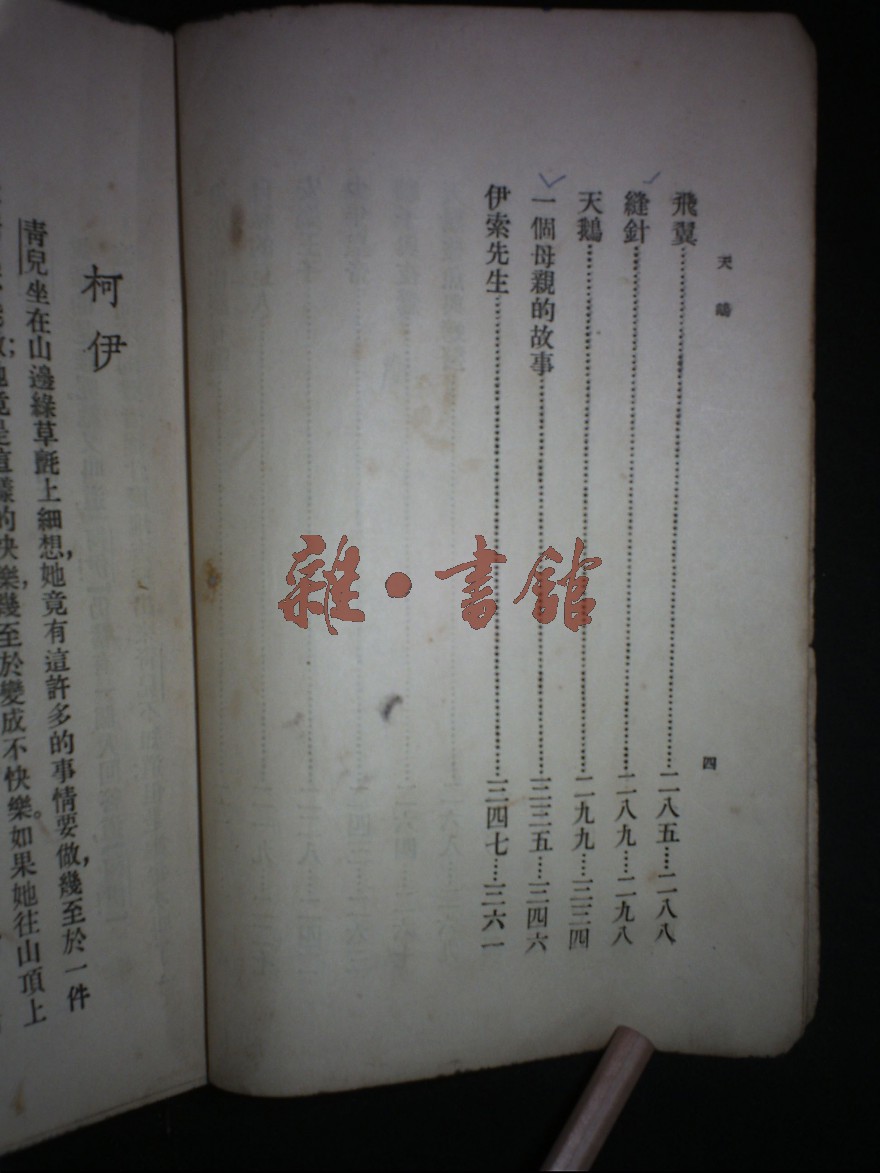 天鵝
四
飛翼……二八五……二八八
縫針……二八九……二九八
天鵝……二九九……三三四
一個母親的故事……三三五……三四六
伊索先生……三四七……三六一
雜·書館
柯伊
青兒坐在山邊綠草氈上細想，她竟有這許多的事情要做，幾至於一件
她竟是這樣的快樂，幾至於變成不快樂。如果她往山頂上